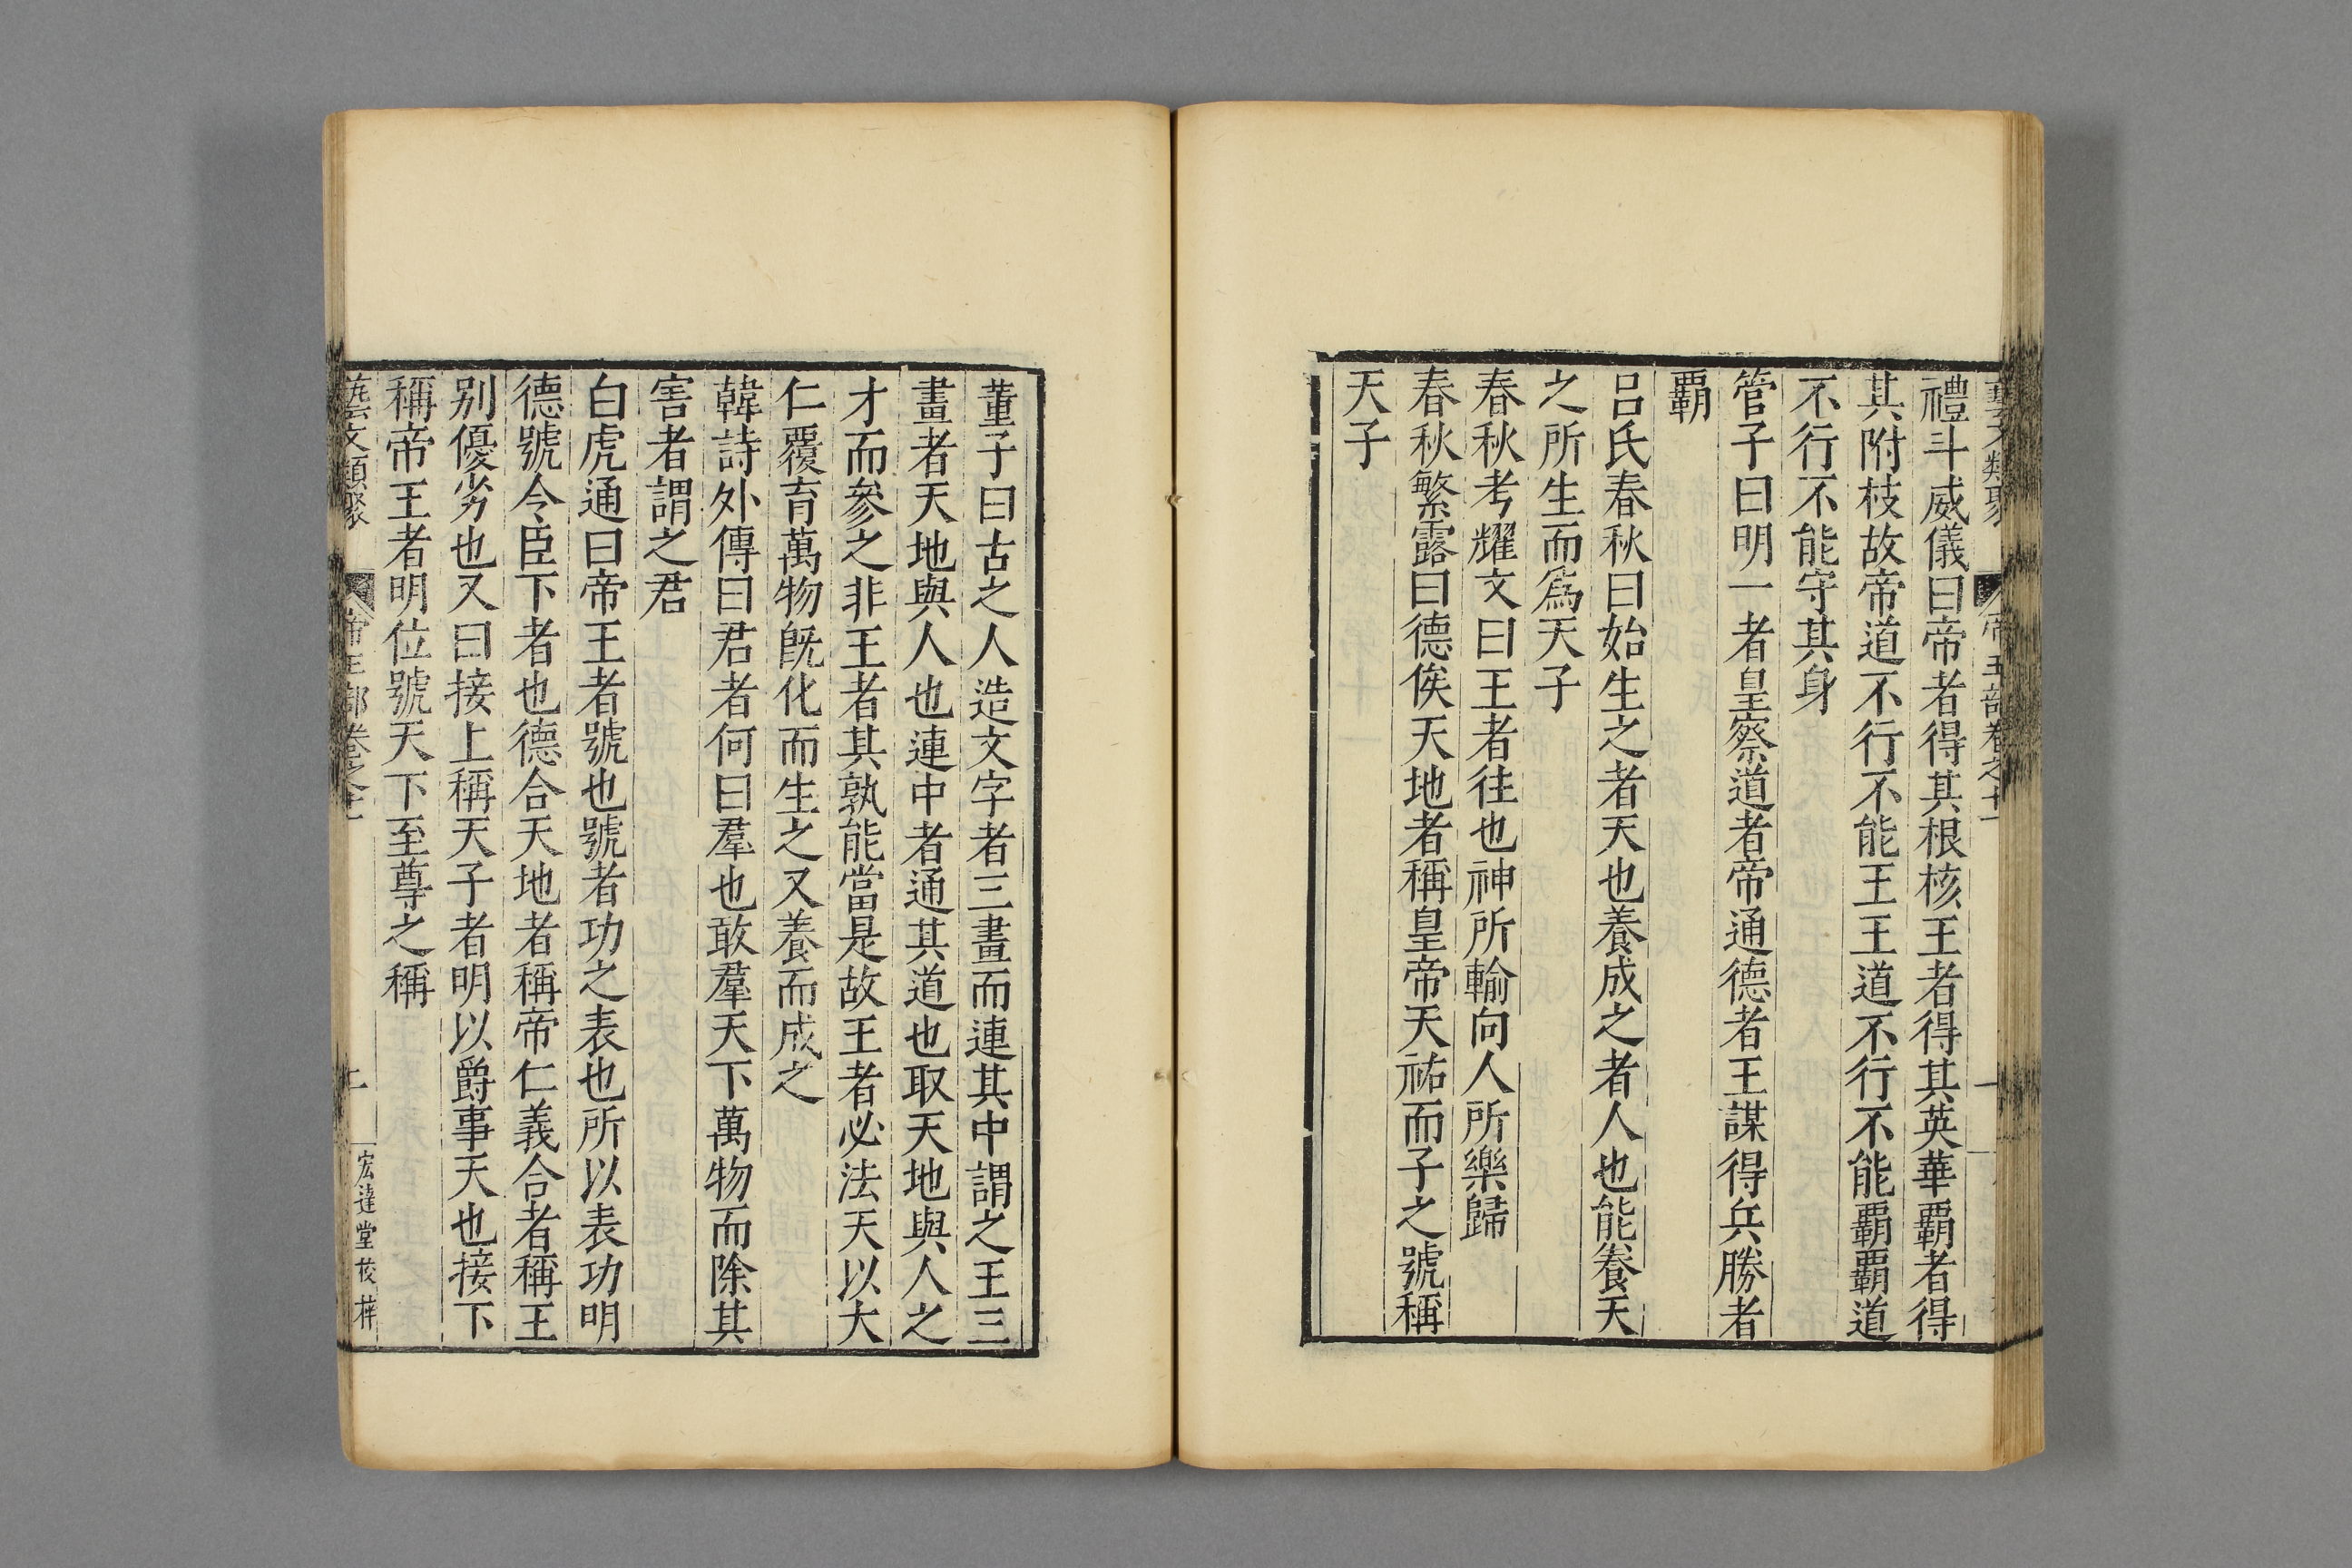 禮斗威儀曰帝者得其根核王者得其英華覇者得
其附枝故帝道不行不能王王道不行不能覇覇道
不行不能守其身
管子曰明一者皇察道者帝通德者王謀得兵勝者
覇
呂氏春秋曰始生之者天也養成之者人也能養天
之所生而爲天子
春秋考耀文曰王者往也神所輸向人所樂歸
春秋繁露曰德侯天地者稱皇帝天祐而子之號稱
天子
董子曰古之人造文字者三畫而連其中謂之王三
畫者天地與人也連中者通其道也取天地與人之
才而參之非王者其孰能當是故王者必法天以大
仁覆育萬物旣化而生之又養而成之
韓詩外傳曰君者何曰羣也敢羣天下萬物而除其
害者謂之君
白虎通曰帝王者號也號者功之表也所以表功明
德號令臣下者也德合天地者稱帝仁義合者稱王
別優劣也又曰接上稱天子者明以爵事天也接下
稱帝王者明位號天下至尊之稱
藝文類聚 帝王部卷之十一 二 宏達堂校梓